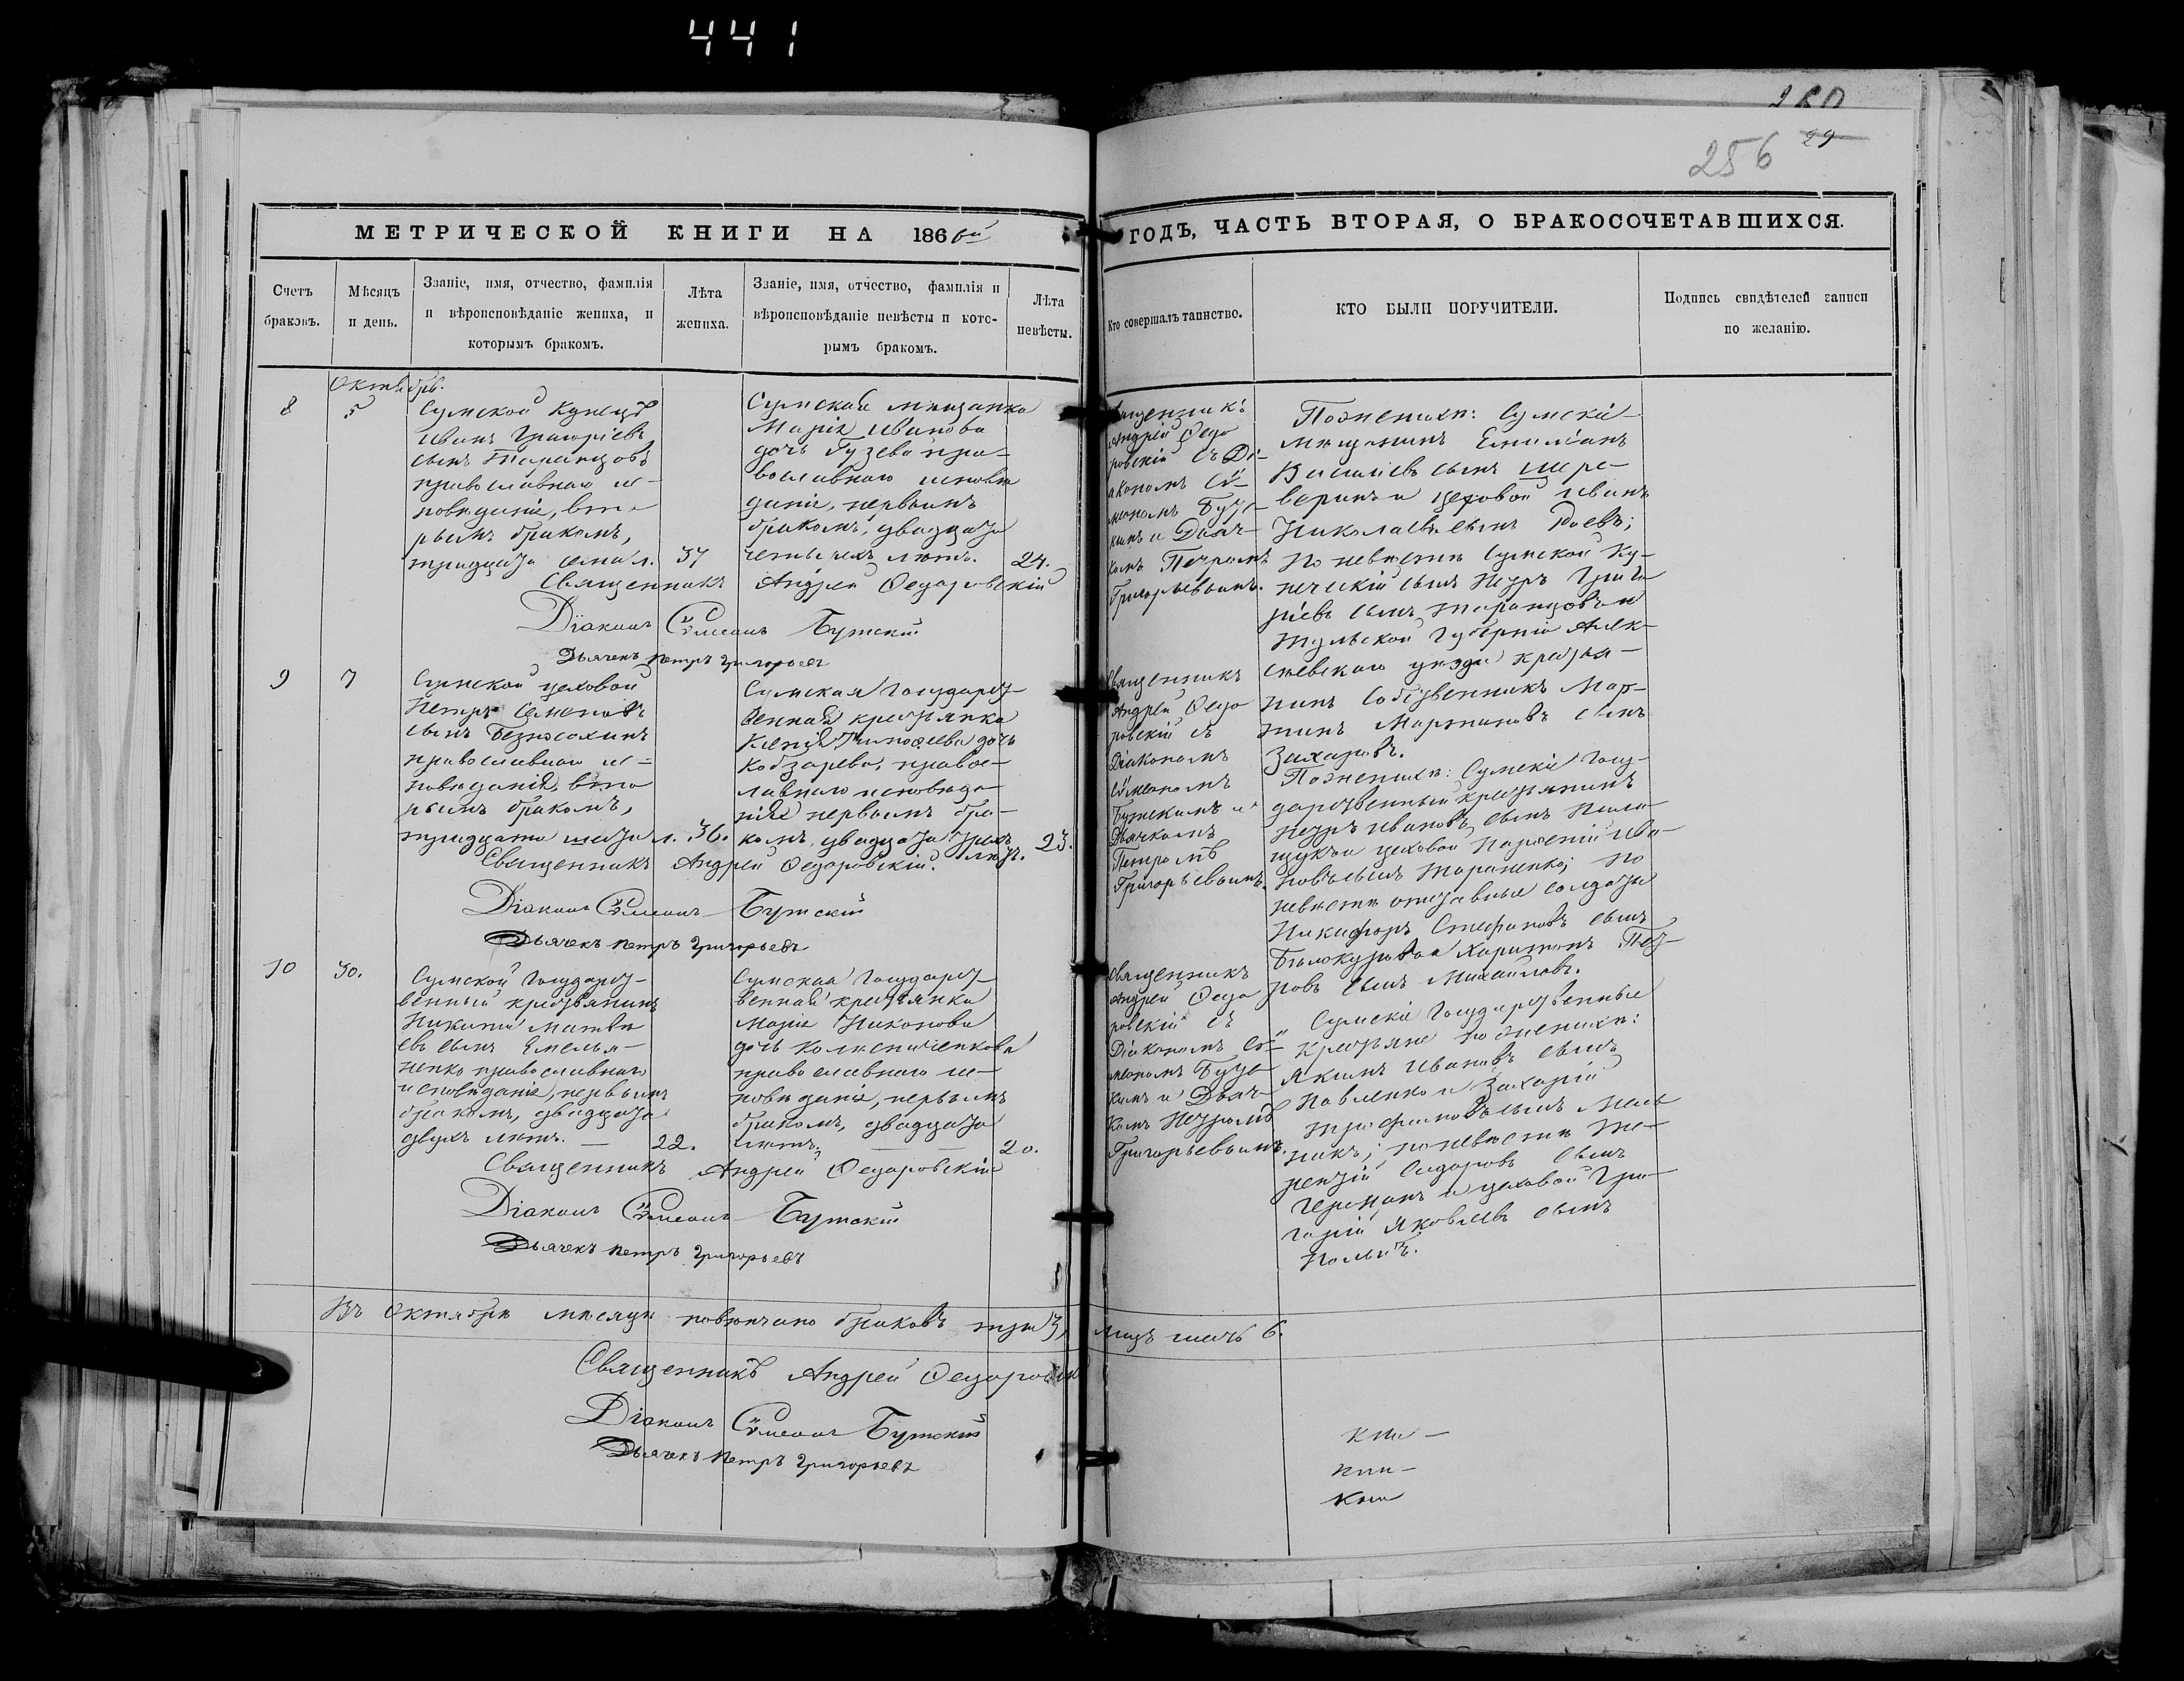 441
280
256 29
МЕТРИЧЕСКОЙ КНИГИ НА 1866й
ГОДЪ, ЧАСТЬ ВТОРАЯ, О БРАКОСОЧЕТАВШИХСЯ.
Счетъ браковъ.
Мѣсяцъ и день.
Званіе, имя, отчество, фамилія
и вѣроисповѣданіе жениха, и
которымъ бракомъ.
Лѣта
жениха.
Званіе, имя, отчество, фамилія и
вѣроисповѣданіе невѣсты и кото-
рымъ бракомъ.
Лѣта
невѣсты.
Кто совершалъ таинство.
КТО БЫЛИ ПОРУЧИТЕЛИ.
Подпись свидѣтелей записи
по желанію.
Октябрь.
8
5
Сумской Купецъ
Иванъ Григоріевъ
сынъ Таранцовъ
православнаго ис-
повѣданія, вто-
рымъ бракомъ,
тридцати семи л.
37
Сумская мѣщанка
Марія Иванова
дочь Гузева пра-
вославнаго исповѣ
данія, первымъ
бракомъ, двадцати
четырехъ лѣтъ.
24.
Священникъ
Андрей Ѳедо
ровскій съ Ді-
акономъ Сѵ-
меономъ Бутс-
кимъ и Дьяч-
комъ Петромъ
Григорьевымъ.
По женихѣ: Сумскіе
мѣщанинъ Емиліанъ
Василіевъ сынъ
и цеховой Иванъ
Николаевъ сынъ
По невѣстѣ Сумской Ку-
печескій сынъ Петръ Григо
ріевъ сынъ Таранцовъ и
Тульской Губерніи Алек-
сѣевскаго уѣзда крестья-
нинъ Собственникъ Мар-
тинъ Мартиновъ сынъ
Захаровъ.
Священникъ Андрей Ѳедоровскій
Діаконъ Сѵмеонъ Бутскій
Дьячекъ Петръ Григорьевъ
9
7
Сумской цеховой
Петръ Семеновъ
сынъ
православнаго ис-
повѣданія, вто
рымъ бракомъ,
тридцати шести л.
36.
Сумская Государст-
венная крестьянка
Ксенія Тимоѳеева дочь
Кобзарева, правос-
лавнаго исповѣда-
нія первымъ бра-
комъ, двадцати трехъ
лѣтъ.
23.
Священникъ
Андрей Ѳедо
ровскій съ
Діакономъ
Сѵмеономъ
Бутскимъ и
Дьячкомъ
Петромъ
Григорьевымъ.
По женихѣ: Сумскіе Госу-
дарственный крестьянинъ
Петръ Ивановъ сынъ
и цеховой Парѳеній Ива-
новъ сынъ Тараненко; по
невѣстѣ отставные солдаты
Никифоръ Стефановъ сынъ
и Харитонъ Пет-
ровъ сынъ Михайловъ.
Священникъ Андрей Ѳедоровскій.
Діаконъ Сѵмеонъ Бутскій
Дьячекъ Петръ Григорьевъ
10
30.
Сумской Государст-
венный крестьянинъ
Никита Матвѣ
евъ сынъ Емелья-
ненко православнаго
исповѣданія, первымъ
бракомъ, двадцати
двухъ лѣтъ. —
22.
Сумская Государст-
венная крестьянка
Марія Никонова
дочь Колесниченкова
православнаго ис-
повѣданія, первымъ
бракомъ, двадцати
лѣтъ.
20.
Священникъ
Андрей Ѳедо
ровскій съ
Діакономъ Сѵ-
меономъ Бутс-
кимъ и Дьяч-
комъ Петромъ
Григорьевымъ.
Сумскіе Государственные
крестьяне по женихѣ:
Якимъ Ивановъ сынъ
Павленко и Захарій
Трофимовъ сынъ Мель
никъ; по невѣстѣ Те-
рентій Сидоровъ сынъ
и цеховой Гри-
горій Яковлевъ сынъ
Священникъ Андрей Ѳедоровскій
Діаконъ Сѵмеонъ Бутскій
Дьячекъ Петръ Григорьевъ
Въ Октябрѣ мѣсяцѣ повѣнчано браковъ три 3, лицъ шесть 6.
Священникъ Андрей Ѳедоровскій
Діаконъ Сѵмеонъ Бутскій
Дьячекъ Петръ Григорьевъ